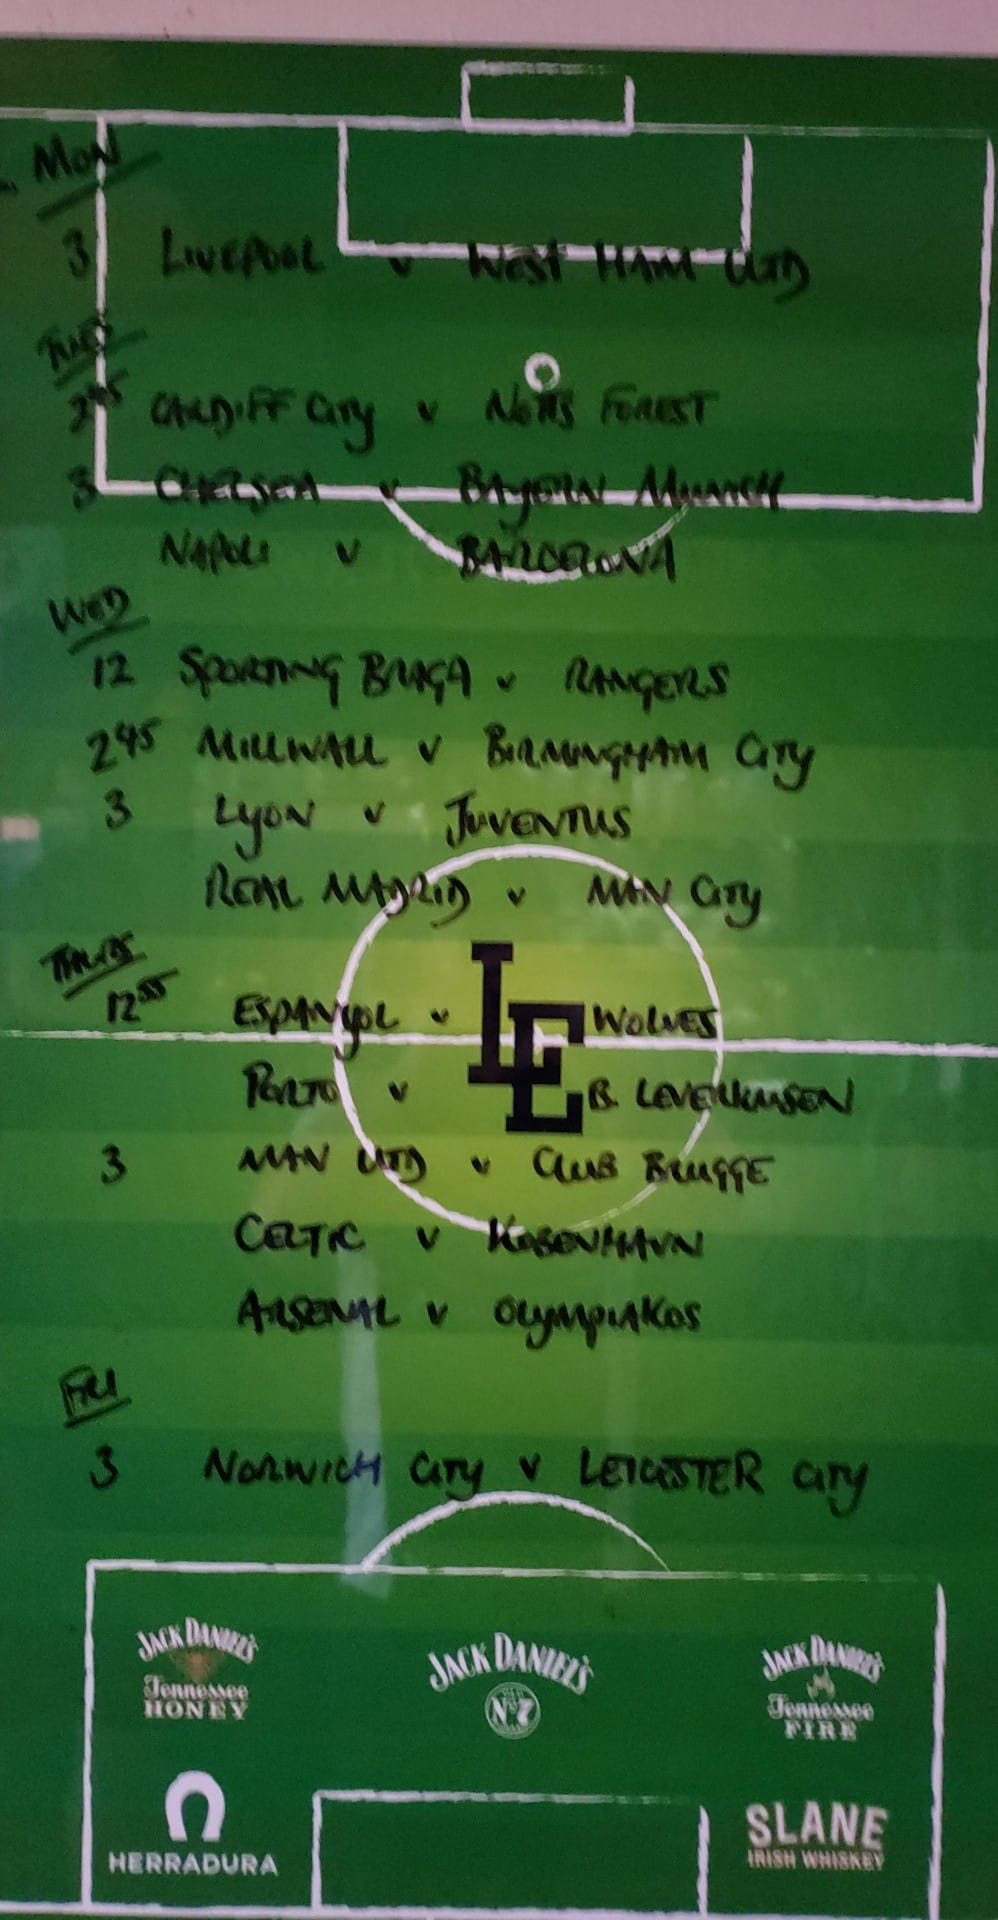 MON
3 LIVERPOOL v WEST HAM UTD
TUES
2 45 CARDIFF City v NOTTS FOREST
3 CHELSEA v BAYERN MUNICH
NAPOLI v BARCELONA
WED
12 SPORTING BRAGA v RANGERS
2 45 MILLWALL v BIRMINGHAM City
3 LyON v JUVENTUS
REAL MADRID v MAN City
THURS
12 55 ESPANyOL v WOLVES
LE
PORTO v B. LEVERKUSEN
3 MAN UTD v CLUB BRUGGE
CELTIC v KOBENHAVN
ARSENAL v OLyMPIAKOS
FRI
3 NORWICH City v LEICESTER City
JACK DANIEL'S JACK DANIEL'S JACK DANIEL'S
Tennessee HONEY Nº7 Tennessee FIRE
HERRADURA SLANE
IRISH WHISKEY